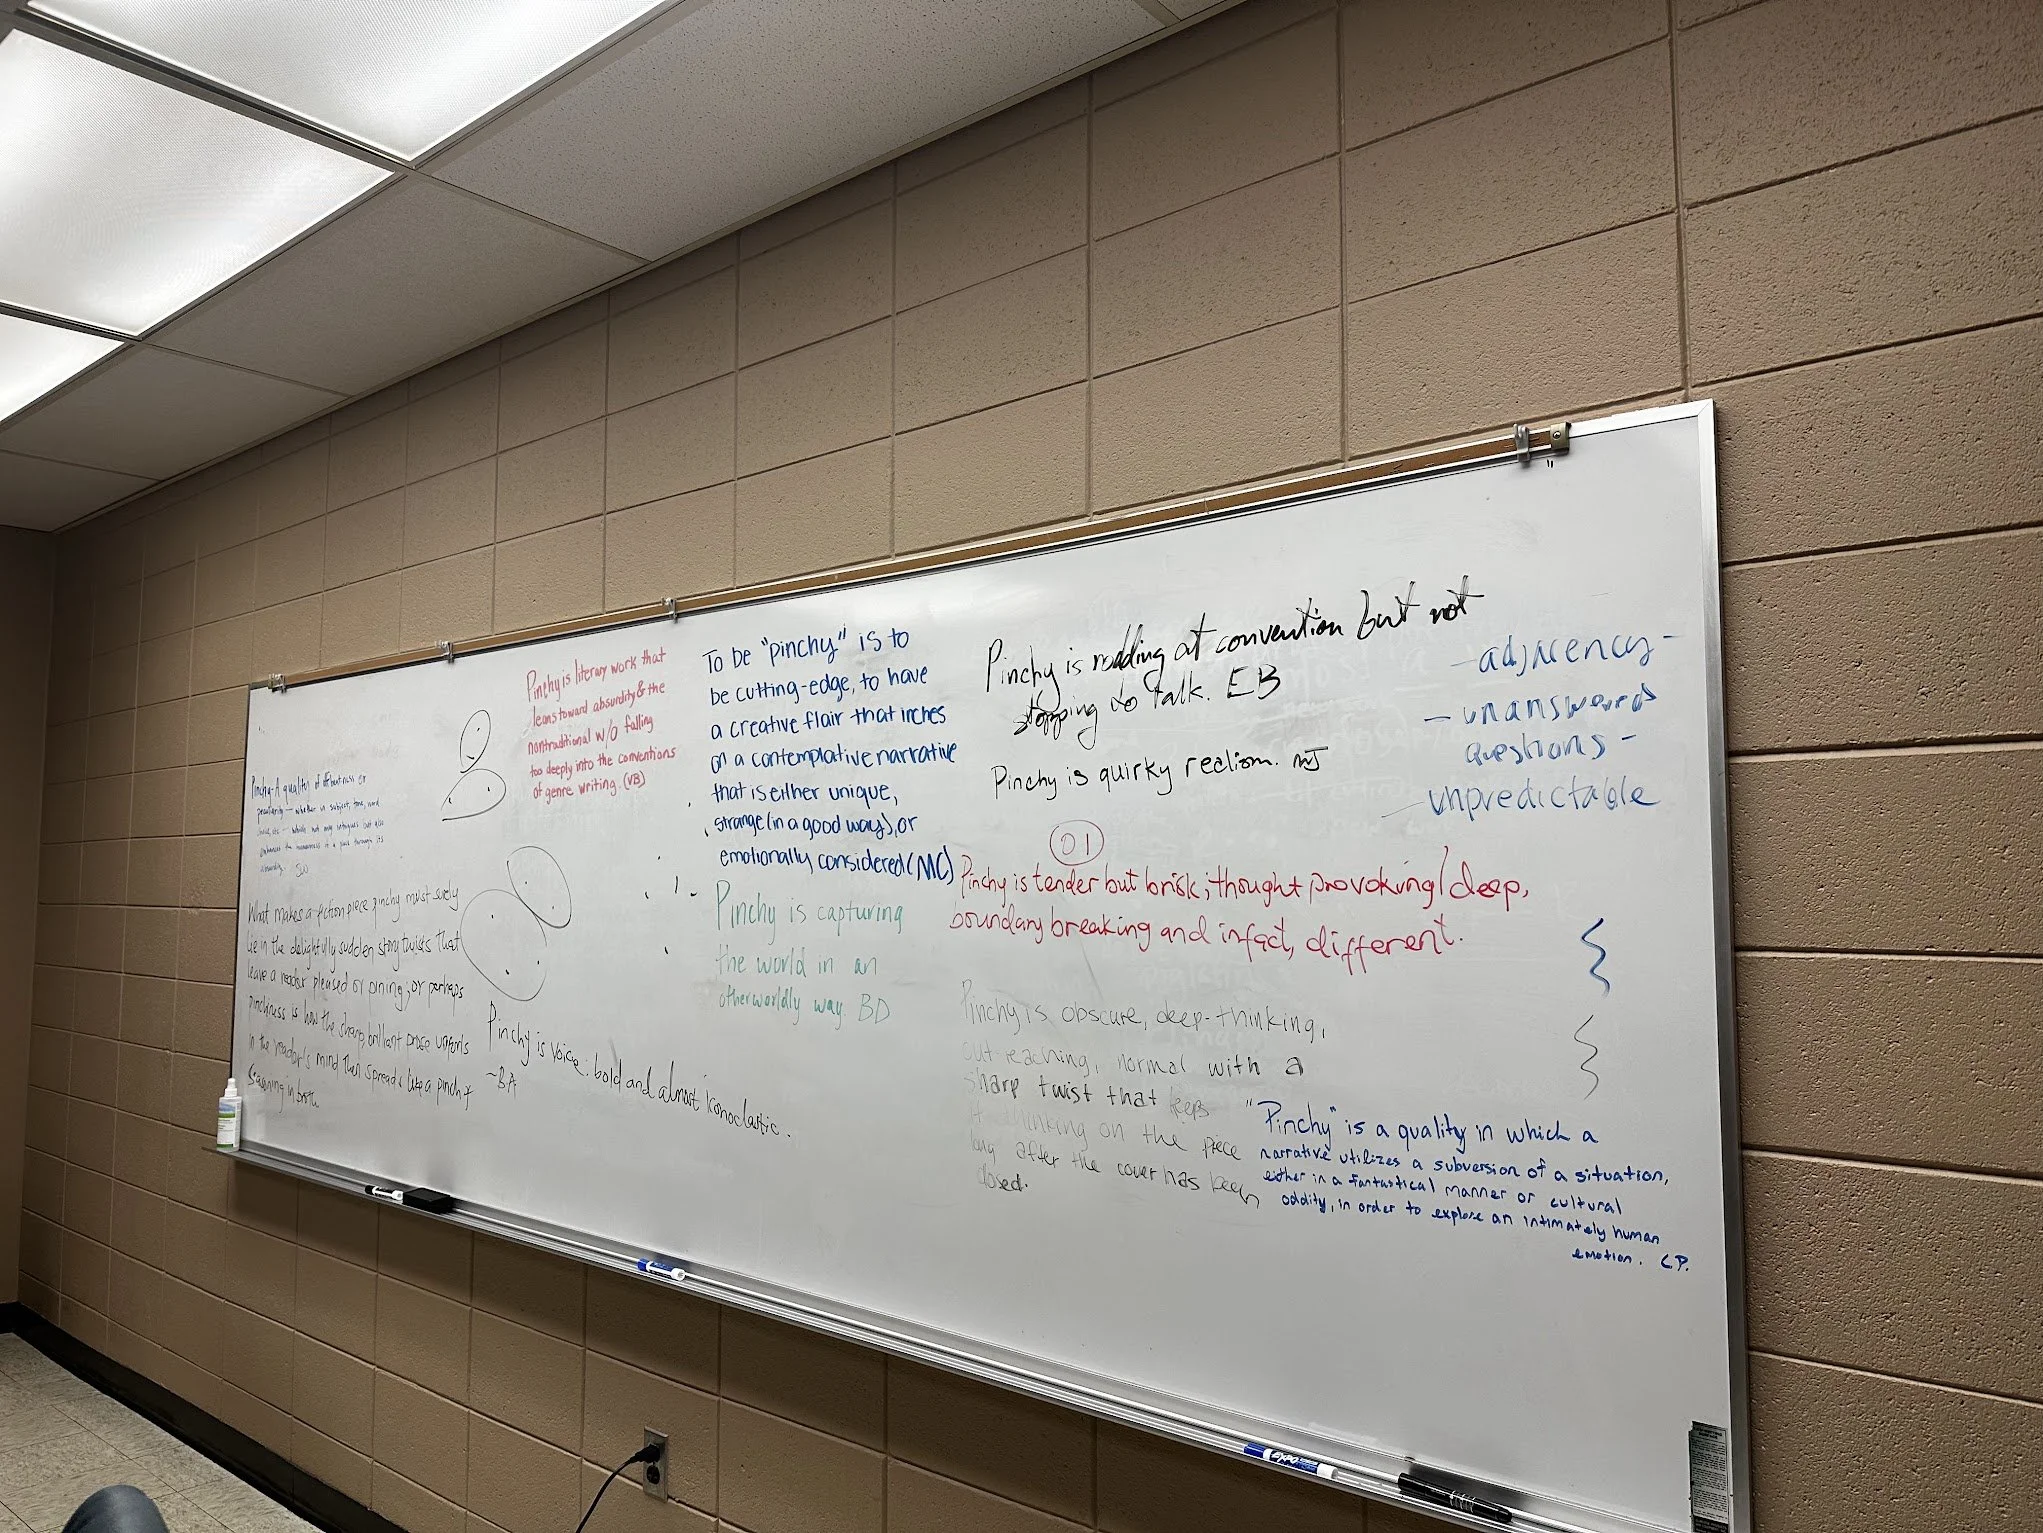 Pinchy - A quality of offbeatness or
peculiarity - whether in subject, tone, word
choice, etc - which not only intrigues but also
enhances the humanness of a piece through its
absurdity. SW
What makes a fiction piece pinchy must surely
lie in the delightfully sudden story twists that
leave a reader pleased or pining; or perhaps
pinchiness is how the sharp, brilliant prose unfurls
in the reader's mind then spreads like a pinch of
seasoning in broth
Pinchy is literary work that
leans toward absurdity & the
nontraditional w/o falling
too deeply into the conventions
of genre writing. (VB)
Pinchy is voice: bold and almost iconoclastic.
~BA
To be "pinchy" is to
be cutting-edge, to have
a creative flair that inches
on a contemplative narrative
that is either unique,
strange (in a good way), or
emotionally considered (MC)
Pinchy is capturing
the world in an
otherworldly way. BD
Pinchy is reading at convention but not
stopping to talk. EB
Pinchy is quirky realism. NJ
OI
Pinchy is tender but brisk; thought provoking/deep,
boundary breaking and infact, different.
Pinchy is obscure, deep-thinking,
out reaching, normal with a
sharp twist that keeps
thinking on the piece
long after the cover has been
closed.
- adjacency -
- unanswered
questions -
unpredictable
"Pinchy" is a quality in which a
narrative utilizes a subversion of a situation,
either in a fantastical manner or cultural
oddity, in order to explore an intimately human
emotion. CP.
EXPO